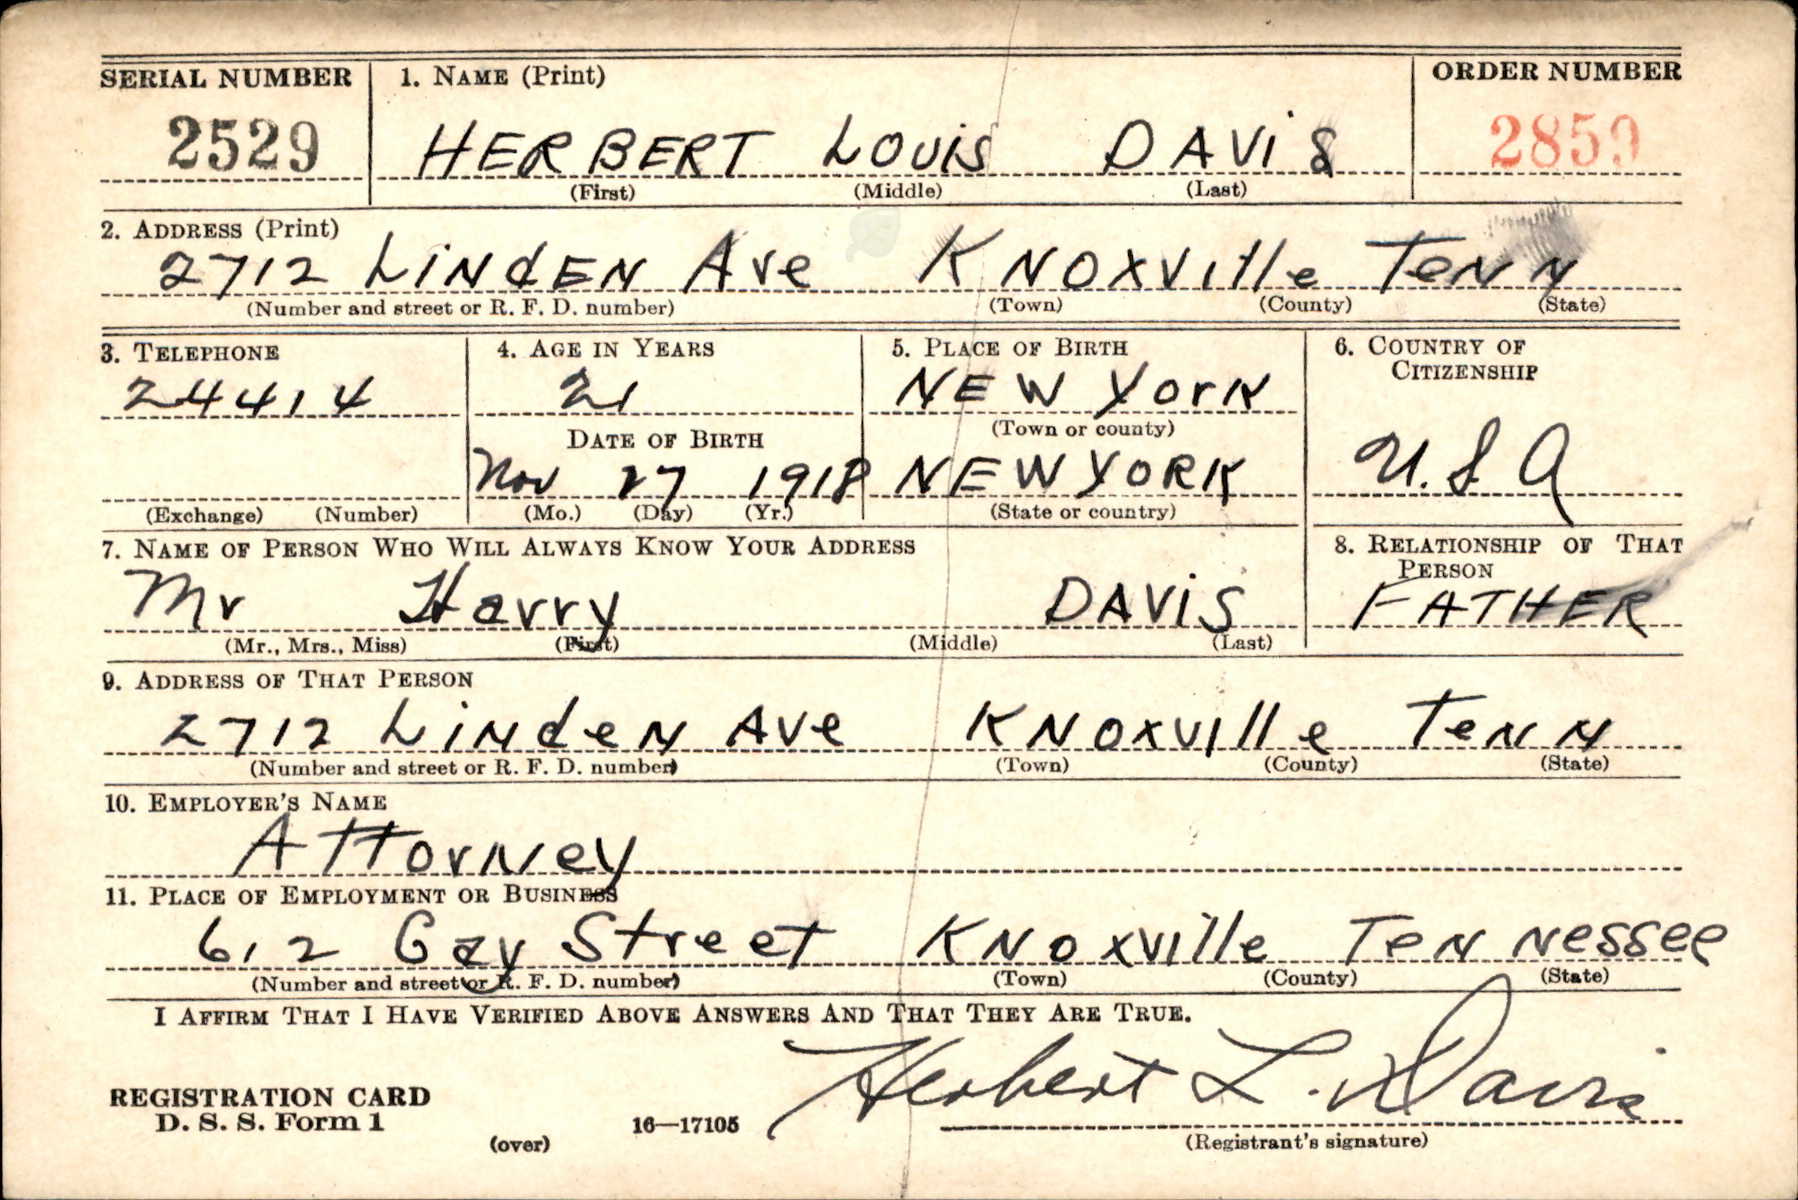 SERIAL NUMBER 1. NAME (Print) ORDER NUMBER
2529 HERBERT LOUIS DAVIS 2859
(First) (Middle) (Last)
2. ADDRESS (Print)
2712 LINDEN Ave KNOXVIlle TENN
(Number and street or R. F. D. number) (Town) (County) (State)
3. TELEPHONE 4. AGE IN YEARS 5. PLACE OF BIRTH 6. COUNTRY OF CITIZENSHIP
24414 21 NEW York
(Town or county)
DATE OF BIRTH
Nov 27 1918 NEW YORK U.S A
(Exchange) (Number) (Mo.) (Day) (Yr.) (State or country)
7. NAME OF PERSON WHO WILL ALWAYS KNOW YOUR ADDRESS 8. RELATIONSHIP OF THAT PERSON
Mr Harry DAVIS FATHER
(Mr., Mrs., Miss) (First) (Middle) (Last)
9. ADDRESS OF THAT PERSON
2712 LINdeN Ave KNOXVIlle TeNN
(Number and street or R. F. D. number) (Town) (County) (State)
10. EMPLOYER'S NAME
ATTorNey
11. PLACE OF EMPLOYMENT OR BUSINESS
612 Gay Street KNOXVIlle TeNNessee
(Number and street or R. F. D. number) (Town) (County) (State)
I AFFIRM THAT I HAVE VERIFIED ABOVE ANSWERS AND THAT THEY ARE TRUE.
Herbert L. Davis
REGISTRATION CARD
D. S. S. Form 1 16—17105
(over) (Registrant's signature)